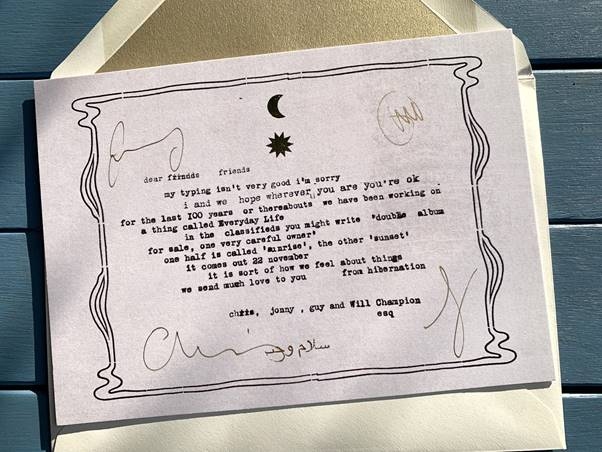 dear frindds friends
my typing isn't very good i'm sorry
i and we hope wherever you are you're ok
for the last 100 years or thereabouts we have been working on
a thing called Everyday Life
in the classifieds you might write 'double album
for sale, one very careful owner'
one half is called 'sunrise', the other 'sunset'
it comes out 22 november
it is sort of how we feel about things
we send much love to you from hibernation
chris, jonny, guy and Will Champion
esq
سلام و